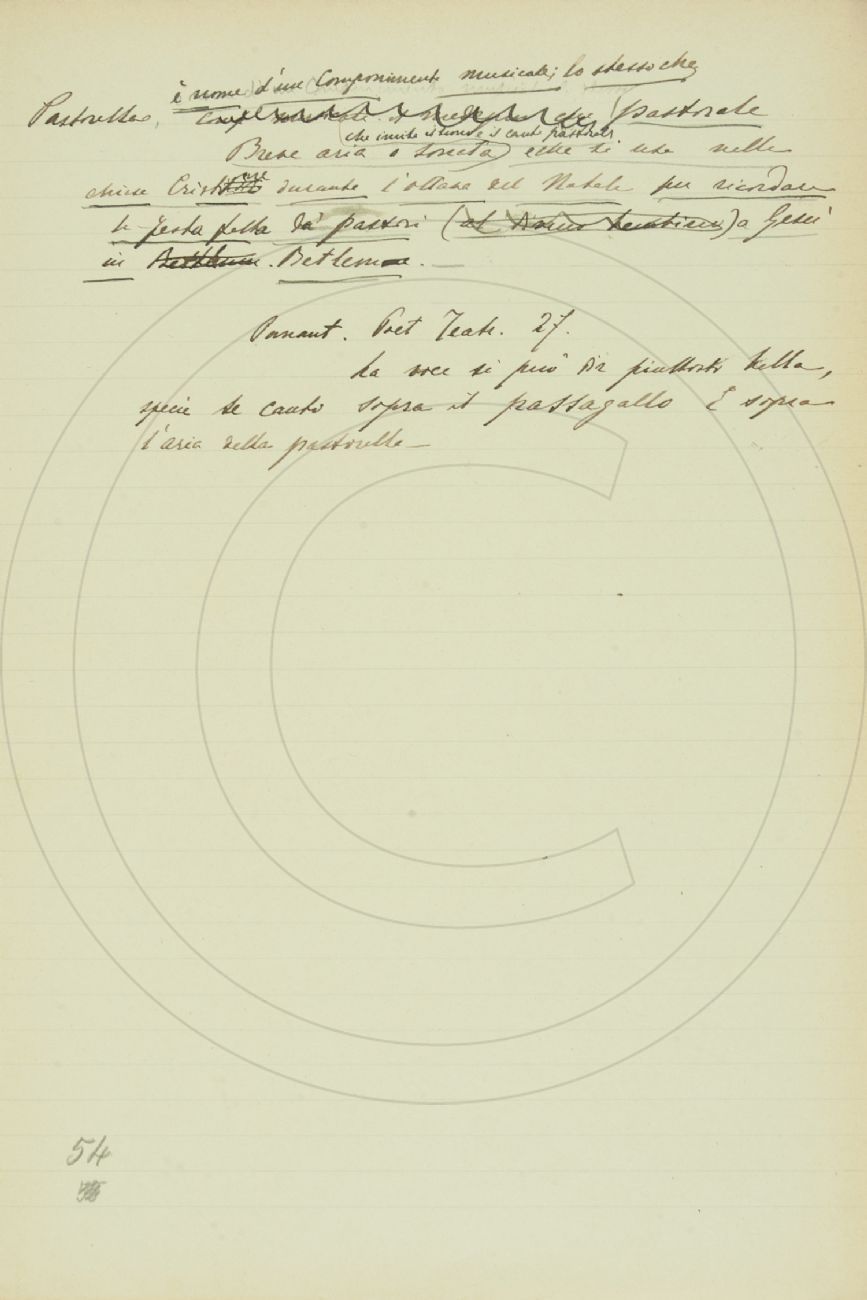 è nome d'un Componimento musicale; lo stesso che
Pastorella, pastorale
che imita il suono e i canti pastorali
Breve aria o sonata, che si usa nelle
chiese Cristiane durante l'ottava del Natale per ricordare
la festa fatta da' pastori (al Divino) a Gesù
in Betlemme. Betlemme.
Panant. Poet Teatr. 27.
La voce si può dir piuttosto bella,
specie se canto sopra il passagallo E sopra
l'aria della pastorella —
54